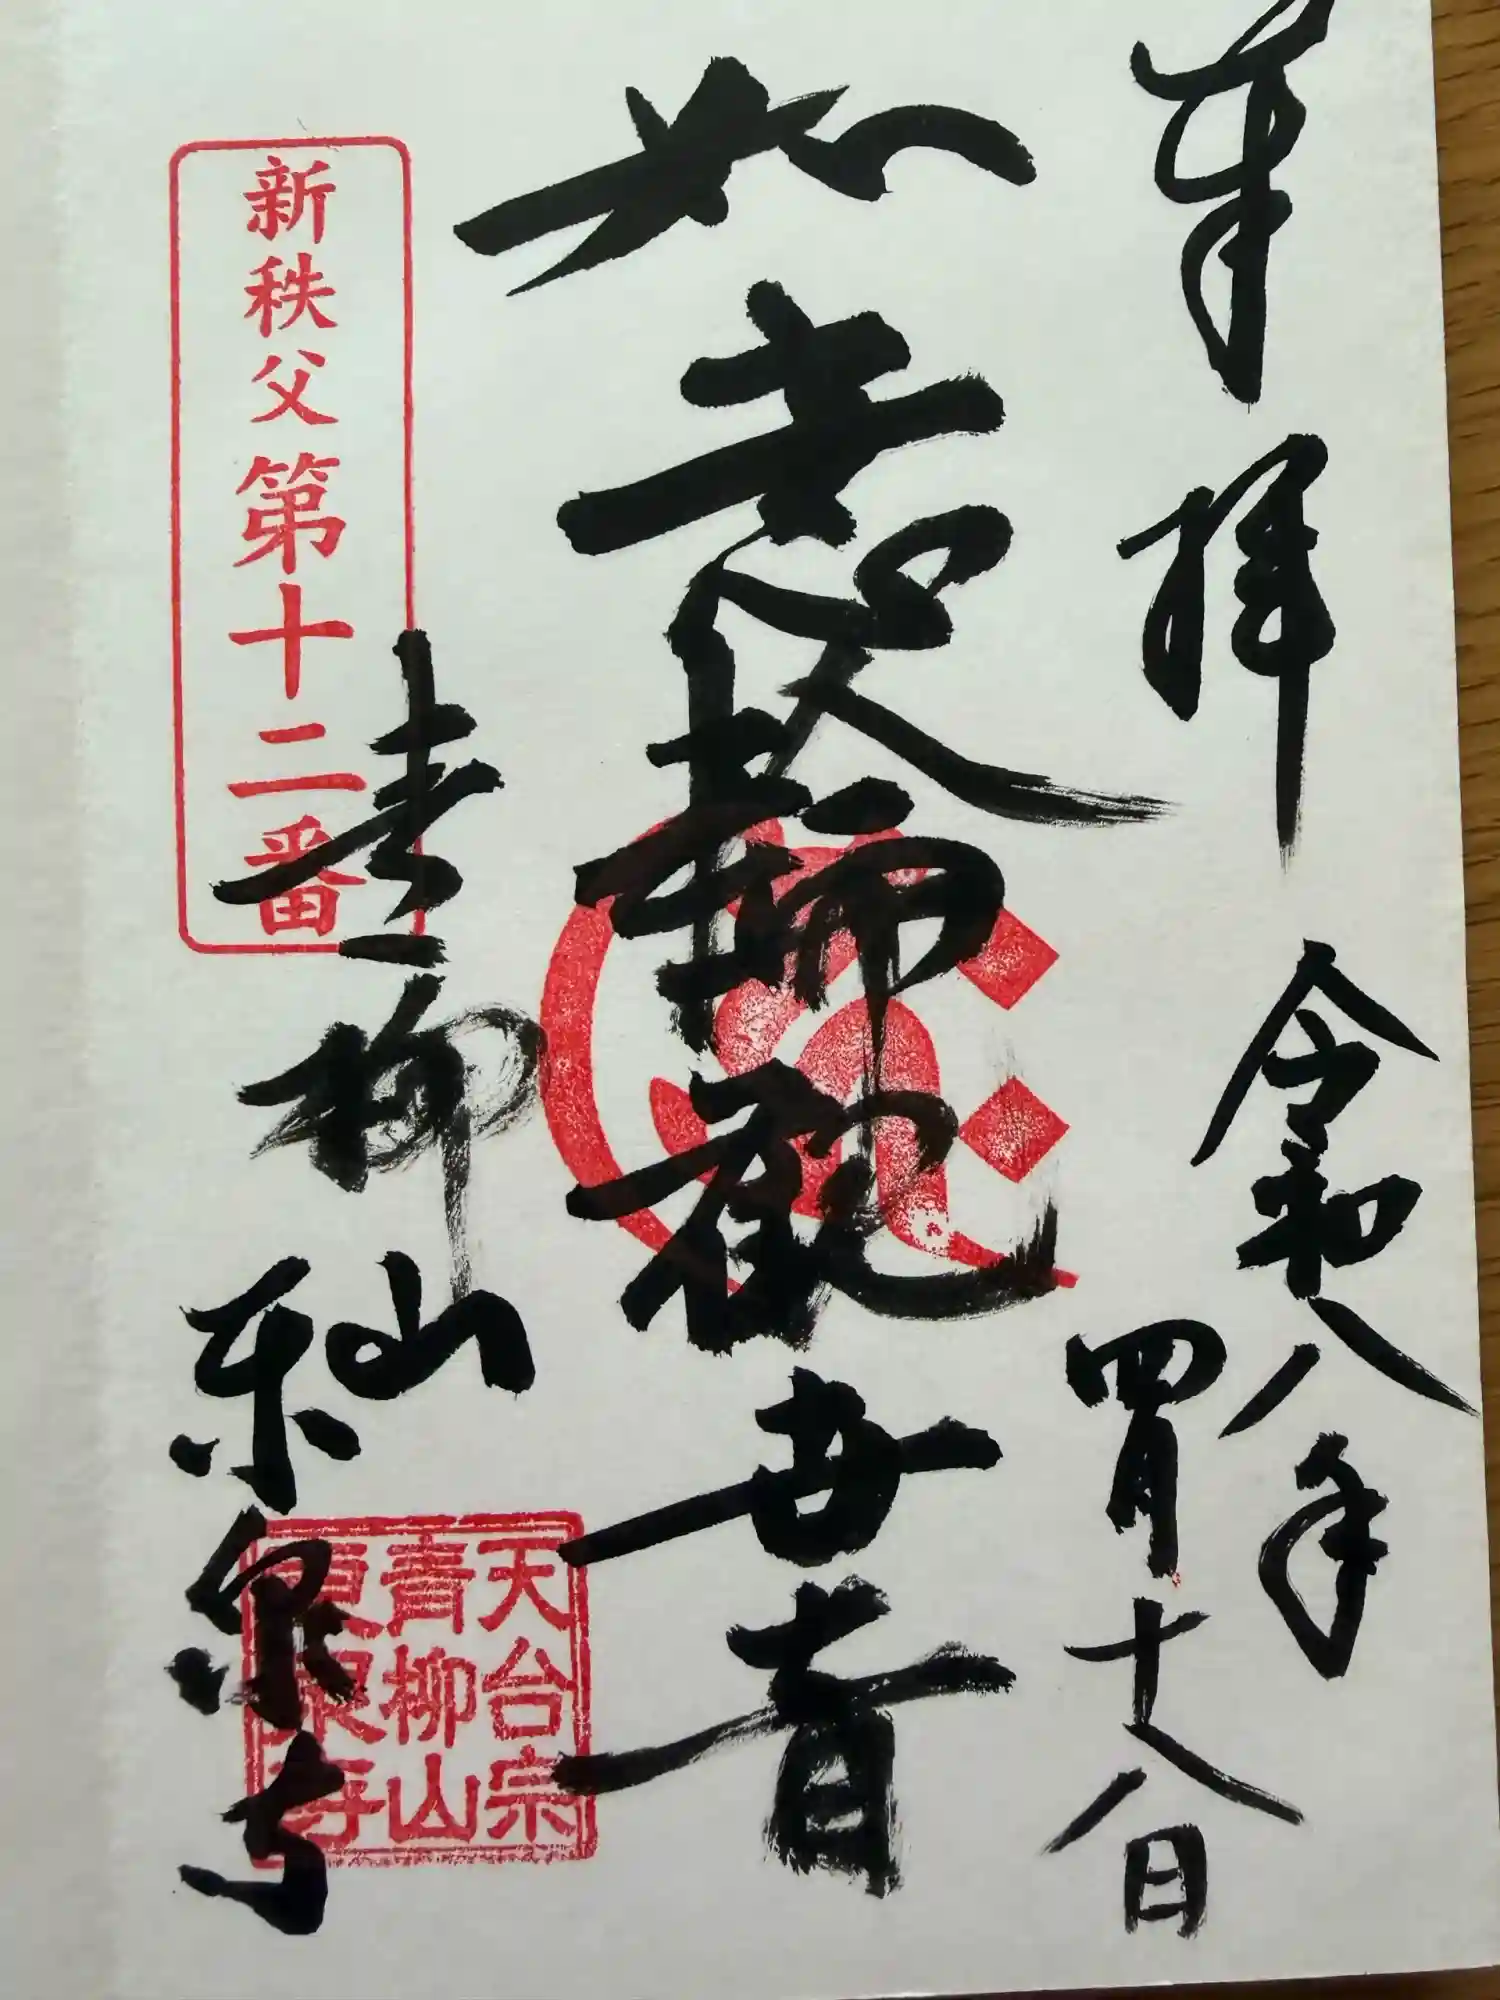 奉拝
令和八年
四月十八日
如意輪観世音
新秩父第十二番
青柳山
東泉寺
天台宗
青柳山
東泉寺